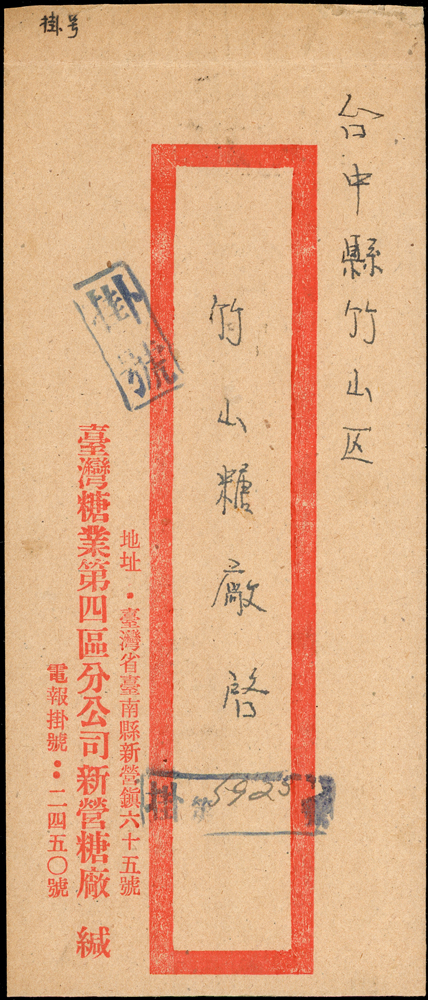 掛号
台中縣竹山区
竹山糖廠啓
掛號
掛 第5925號
地址·臺灣省臺南縣新營鎮六十五號
臺灣糖業第四區分公司新營糖廠 緘
電報掛號：二四五〇號